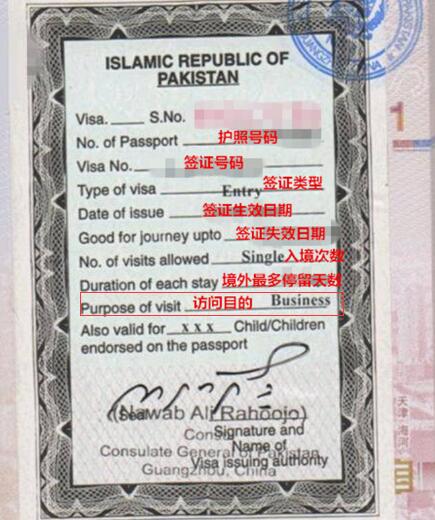 ISLAMIC REPUBLIC OF
PAKISTAN
Visa. S.No.
No. of Passport 护照号码
Visa No. 签证号码
Type of visa Entry 签证类型
Date of issue 签证生效日期
Good for journey upto 签证失效日期
No. of visits allowed Single 入境次数
Duration of each stay 境外最多停留天数
Purpose of visit 访问目的 Business
Also valid for x x x Child/Children
endorsed on the passport
(Nawab Ali Rahoojo)
Seal
Signature and
Name of
Consulate General of Pakistan
Visa issuing authority
Guangzhou, China
1
天津·海河